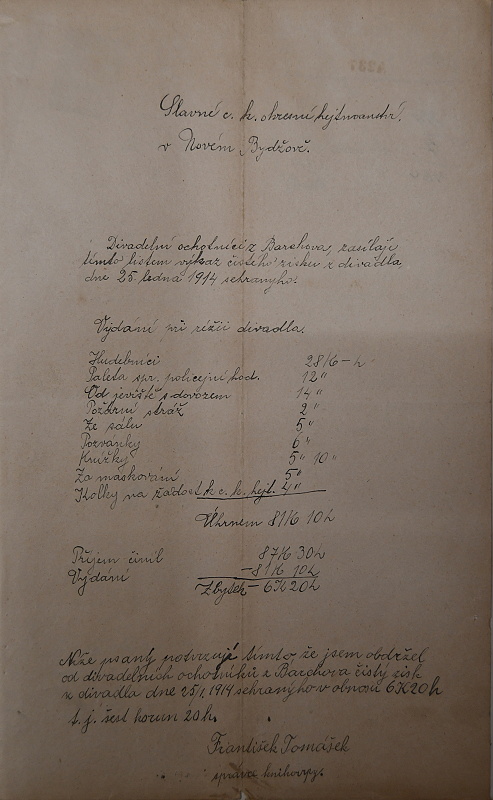 Slavné c. k. okresní hejtmanství.
v Novém Bydžově.
Divadelní ochotníci z Barchova, zasílají
tímto listem výkaz čistého zisku z divadla,
dne 25. ledna 1914 sehraného.
Vydání při režii divadla.
Hudebníci 28 K – h
Paleta spr. policejní hod. 12 "
Od jeviště s dovozem 14 "
Požární stráž 2 "
Ze sálu 5 "
Pozvánky 6 "
Knížky 5 " 10 "
Za maskování 5 "
Kolky na žádost k c. k. hejt. 4 "
Úhrnem 81 K 10 h
Příjem činil 87 K 30 h
Vydání – 81 K 10 h
Zbytek – 6 K 20 h
Níže psaný potvrzuji tímto že jsem obdržel
od divadelních ochotníků z Barchova čistý zisk
z divadla dne 25/1. 1914 sehraného v obnosu 6 K 20 h
t. j. šest korun 20 h.
František Tomášek
správce